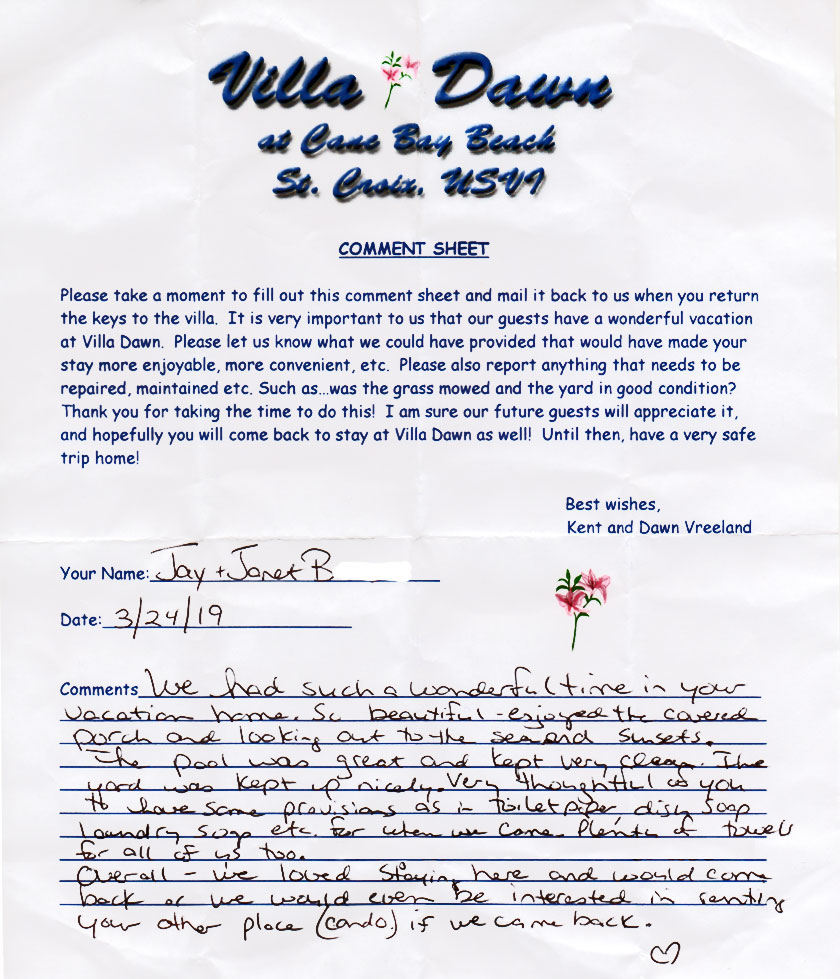 Villa Dawn
at Cane Bay Beach
St. Croix, USVI
COMMENT SHEET
Please take a moment to fill out this comment sheet and mail it back to us when you return
the keys to the villa. It is very important to us that our guests have a wonderful vacation
at Villa Dawn. Please let us know what we could have provided that would have made your
stay more enjoyable, more convenient, etc. Please also report anything that needs to be
repaired, maintained etc. Such as...was the grass mowed and the yard in good condition?
Thank you for taking the time to do this! I am sure our future guests will appreciate it,
and hopefully you will come back to stay at Villa Dawn as well! Until then, have a very safe
trip home!
Best wishes,
Kent and Dawn Vreeland
Your Name: Jay + Janet B
Date: 3/24/19
Comments We had such a wonderful time in your
vacation home. So beautiful - enjoyed the covered
porch and looking out to the sea and sunsets.
The pool was great and kept very clean. The
yard was kept up nicely. Very thoughtful of you
to have some provisions as in toilet paper dish soap
laundry soap etc. for when we came. Plenty of towels
for all of us too.
Overall - we loved staying here and would come
back or we would even be interested in renting
your other place (condo.) if we came back.